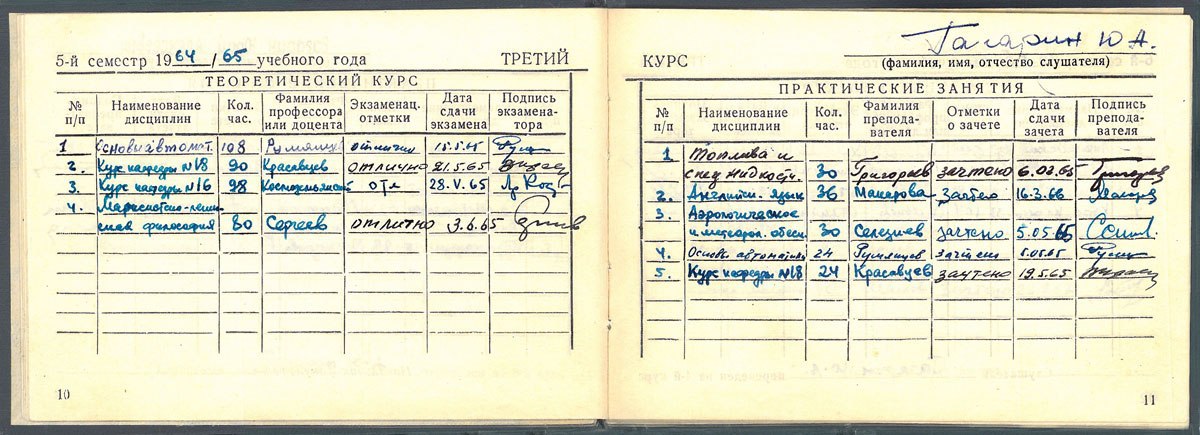 5-й семестр 1964/65 учебного года ТРЕТИЙ
ТЕОРЕТИЧЕСКИЙ КУРС
№ п/п Наименование дисциплин Кол. час. Фамилия профессора или доцента Экзаменац. отметки Дата сдачи экзамена Подпись экзаменатора
1 Основы автомат. 108 Румянцев отлично 15.5.65
2. Курс кафедры №18 90 Красавцев отлично 21.5.65
3. Курс кафедры №16 98 отл 28.V.65
4. Марксистско-ленин-
ская философия 80 Сергеев отлично 3.6.65
10
Гагарин Ю А.
КУРС (фамилия, имя, отчество слушателя)
ПРАКТИЧЕСКИЕ ЗАНЯТИЯ
№ п/п Наименование дисциплин Кол. час. Фамилия преподавателя Отметки о зачете Дата сдачи зачета Подпись преподавателя
1 Топлива и
спец жидкости. 30 Григорьев зачтено 6.03.65 Григорьев
2. Английск. язык 36 Макарова Зачтено 16.3.66
3. Аэрологическое
и метеорол. обесп. 30 Селезнев зачтено 5.05.65
4. Основы автоматики 24 Румянцев зачтено 5.05.65
5. Курс кафедры №18 24 Красавцев зачтено 19.5.65
11